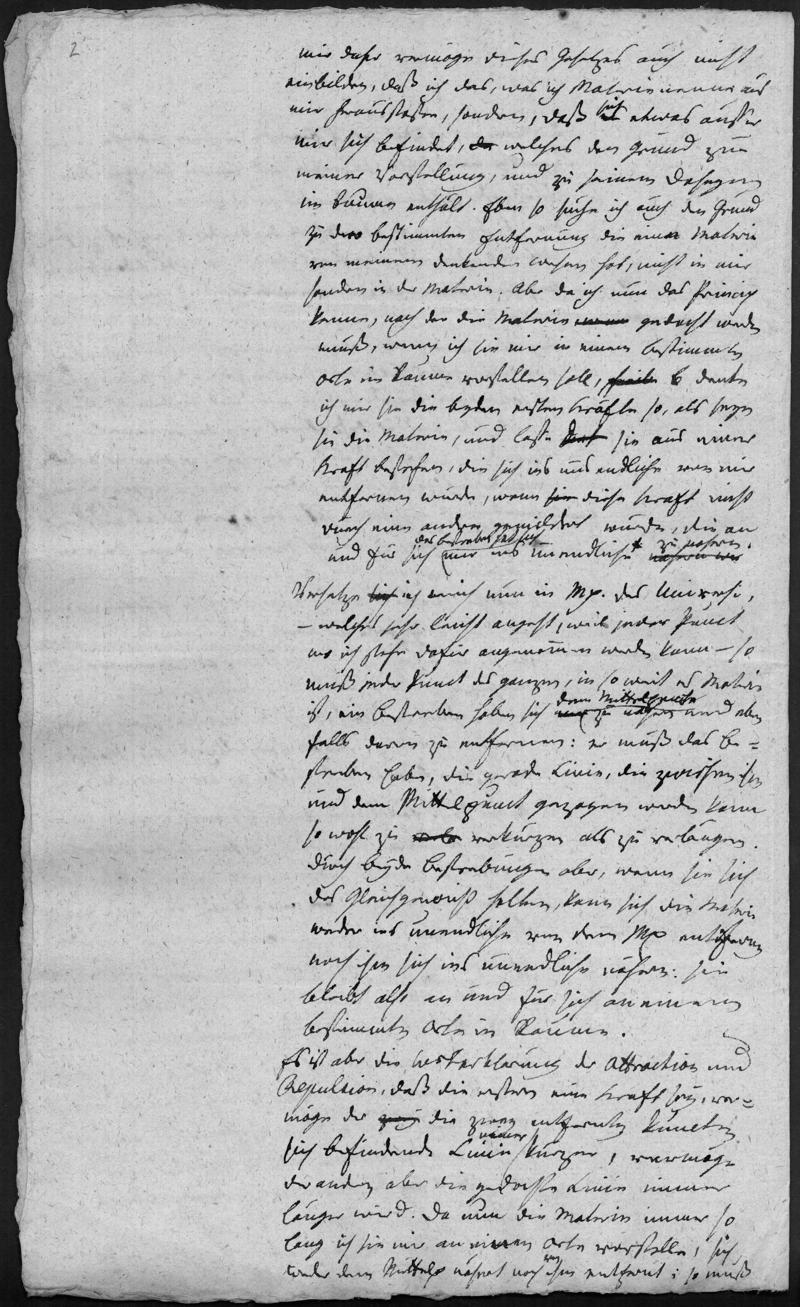 2
mir daher vermöge dieses Gesetzes auch nicht
einbilden, daß ich das, was ich Materie nenne aus
mir herausstoße, sondern, daß sich etwas außer
mir sich befindet, welches den Grund zur
meiner Vorstellung, und zu seinem Daseyn
im Raume enthält. Eben so suche ich auch den Grund
zu der bestimmten Entfernung die eine Materie
von meinem denkenden Wesen hat, nicht in mir
sondern in der Materie. Aber da ich nun das Princip
kenne, nach der die Materie gedacht werden
muß, wenn ich sie mir in einem bestimmten
Orte im Raume vorstellen soll, so denke
ich mir sie die beyden ersten Kräfte so, als seyn
sie die Materie, und lasse sie aus einer
Kraft bestehen, die sich ins unendliche von mir
entfernen würde, wenn diese Kraft nicht
durch eine andere gemildert würde, die an
und für sich das Bestreben hat sich mir ins unendliche zu nähern.
Versetze ich mich nun in Mp. des Universi,
– welches sehr leicht angeht, weil jeder Punct
wo ich stehe dafür angenommen werden kann – so
muß jeder Punct des ganzen, in so weit es Materie
ist, ein Bestreben haben sich dem Mittelpuncte zu nähern und eben
falls davon zu entfernen: er muß das Be=
streben haben, die gerade Linie, die zwischen ihm
und dem Mittelpunct gezogen werden kann
so wohl zu verkürzen als zu verlängern.
Durch beyde Bestrebungen aber, wenn sie sich
das Gleichgewicht halten, kann sich die Materie
weder ins unendliche von dem Mp entfernen
noch ihm sich ins unendliche nähern: sie
bleibt also an und für sich an einem
bestimmten Orte im Raume.
Es ist aber die Worterklärung der Attraction und
Repulsion, daß die erstere eine Kraft sey, ver=
möge der die zwey entfernten Puncten
sich befindende Linie immer kürzer, vermöge
der andern aber die gedachte Linie immer
länger wird. Da nun die Materie immer so
lang ich sie mir an einem Orte vorstelle, sich
weder dem Mittelp nähert noch von ihm entfernt; so muß